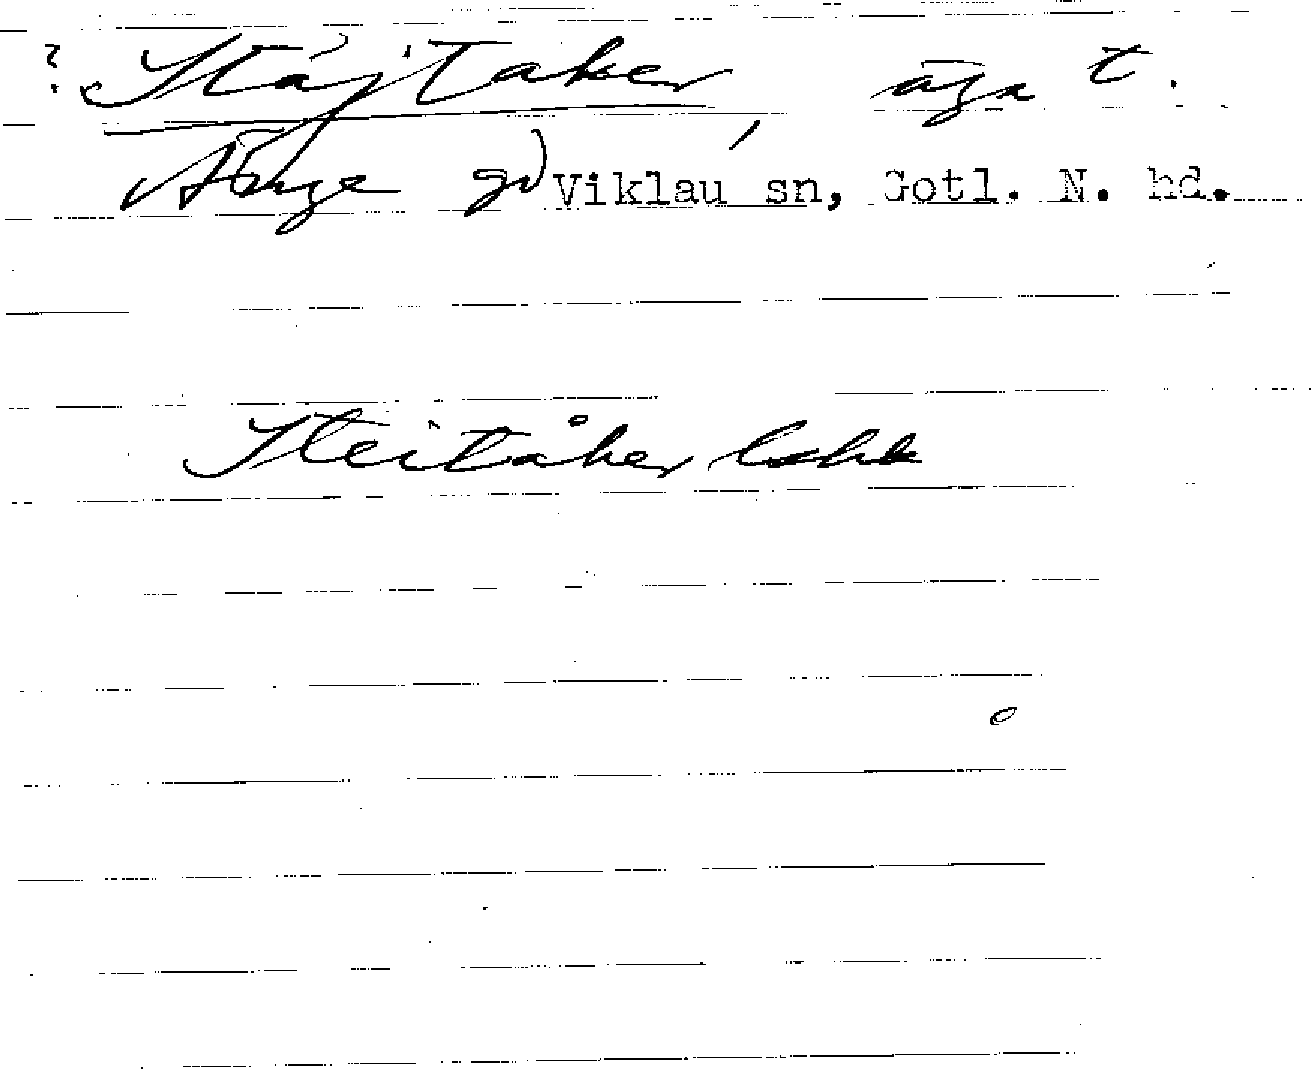 ? Stäjtaker äga t.
Änge gd Viklau sn, Gotl. N. hd.
Steitåker lskk